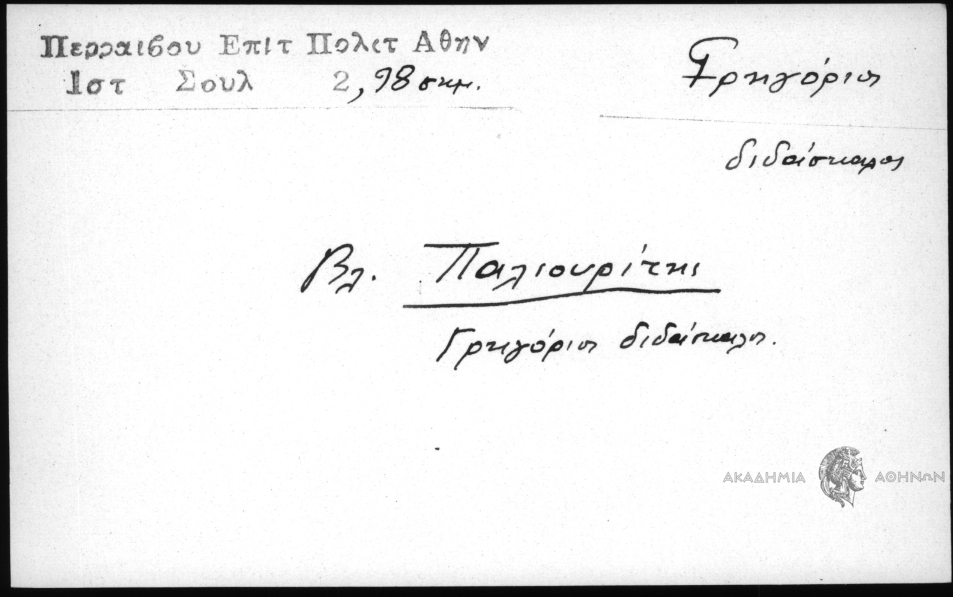 Περραιβου Επιτ Πολετ Αθην
Ιστ Σουλ 2, 98 σημ.
Γρηγόριος
διδάσκαλος
Βλ. Παλιουρίτης
Γρηγόριος διδάσκαλος.
ΑΚΑΔΗΜΙΑ ΑΘΗΝΩΝ